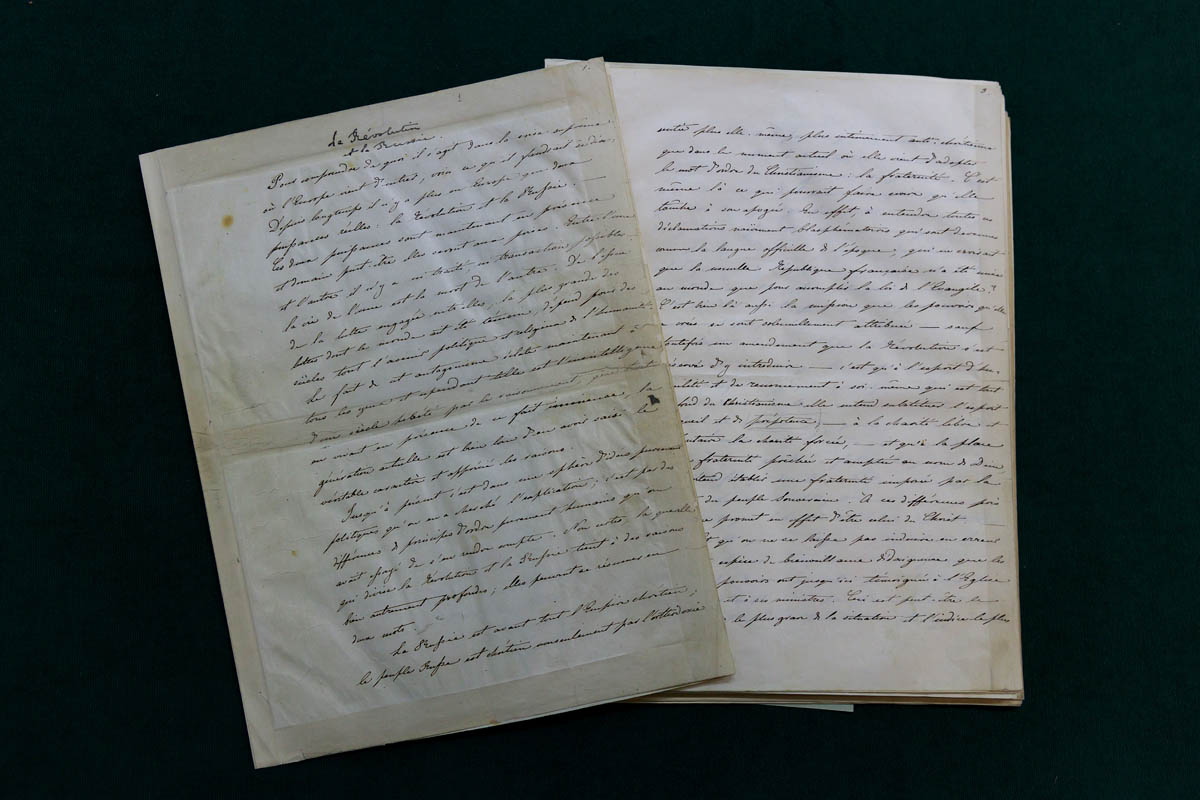 1.
La Révolution
et la Russie.
Pour comprendre de quoi il s'agit dans la crise suprême,
où l'Europe vient d'entrer, voici ce qu'il faudrait se dire.
Depuis longtemps il n'y a plus en Europe que deux
puissances réelles: la Révolution et la Russie. —
Ces deux puissances sont maintenant en présence
et demain peut-être elles seront aux prises. Entre l'une
et l'autre il n'y a ni traité, ni transaction possible.
la vie de l'une est la mort de l'autre. De l'issue
de la lutte engagée entr'elles, la plus grande des
luttes dont le monde ait été témoin, dépend pour des
siècles tout l'avenir politique et religieux de l'humanité.
Le fait de cet antagonisme éclate maintenant à
tous les yeux et cependant telle est l'inintelligence
d'un siècle hébété par le raisonnement, que tout
en vivant en présence de ce fait immense, la
génération actuelle est bien loin d'en avoir saisi le
véritable caractère et apprécié les raisons.
Jusqu'à présent c'est dans une sphère d'idées purement
politiques qu'on en a cherché l'explication; c'est par des
différences de principes d'ordre purement humain qu'on
avait essayé de s'en rendre compte. Non certes, la querelle
qui divise la Révolution et la Russie tient à des raisons
bien autrement profondes; elles peuvent se résumer en
deux mots.
La Russie est avant tout l'Empire chrétien;
le peuple Russe est chrétien non seulement par l'orthodoxie
3.
entre plus elle-même, plus intimement anti-chrétienne
que dans le moment actuel où elle vient d'adopter
le mot d'ordre du Christianisme: la fraternité. C'est
même là ce qui pourrait faire croire qu'elle
touche à son apogée. En effet, à entendre toutes ces
déclamations naïvement blasphématoires qui sont devenues
comme la langue officielle de l'époque, qui ne croirait
que la nouvelle République française n'a été unie
au monde que pour accomplir la loi de l'Evangile?
C'est bien là aussi la mission que les pouvoirs qu'elle
a créés se sont solennellement attribuée — sauf
toutefois un amendement que la Révolution s'est
réservé d'y introduire — c'est qu'à l'esprit d'hu-
milité et de renoncement à soi-même qui est tout
le fond du Christianisme elle entend substituer l'esprit
d'orgueil et de prépotence, — à la charité libre et
volontaire la charité forcée, — et qu'à la place
d'une fraternité prêchée et acceptée au nom de Dieu,
entend établir une fraternité imposée par la
du peuple Souverain. A ces différences près
promet en effet d'être celui du Christ —
qu'on ne se laisse pas induire en erreur
espèce de bienveillance dédaigneuse que les
pouvoirs ont jusqu'ici témoignée à l'Eglise
et à ses ministres. Ceci est peut-être le
le plus grave de la situation et l'indice le plus